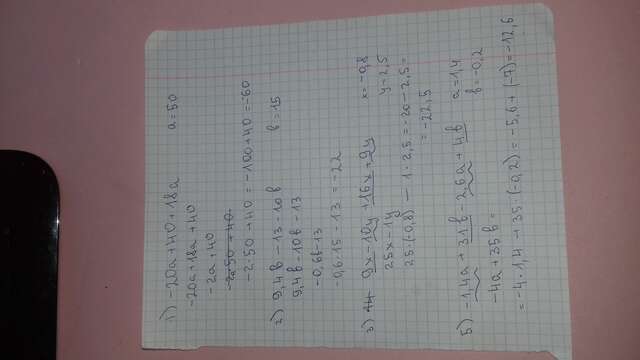 1) -20a + 40 + 18a a = 50
-20a + 18a + 40
-2a + 40
-2·50 + 40 = -100 + 40 = -60
2) 9,4b - 13 - 10b b = 15
9,4b - 10b - 13
-0,6b - 13
-0,6·15 - 13 = -22
3) 9x - 10y + 16x + 9y x = -0,8
25x - 1y y = 2,5
25·(-0,8) - 1·2,5 = -20 - 2,5 =
= -22,5
5) -1,4a + 31b - 2,6a + 4b a = 1,4
b = -0,2
-4a + 35b =
= -4·1,4 + 35·(-0,2) = -5,6 + (-7) = -12,6